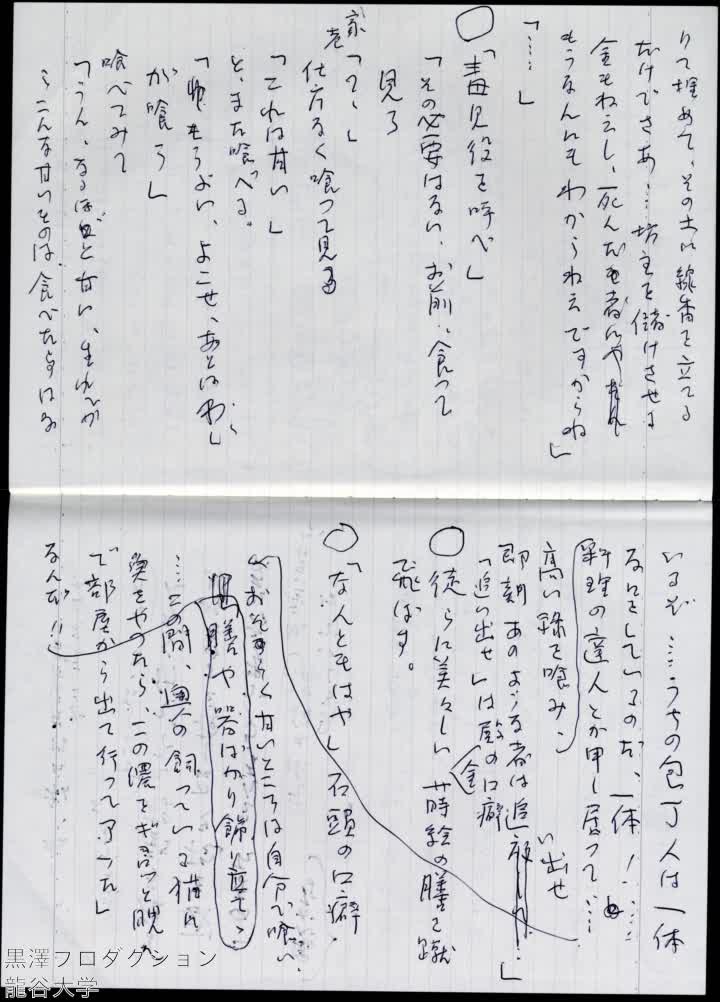 りて埋めて、その土に線香を立てる
だけでさあ…坊主を儲けさせる
金もねえし、死んだ者にや
もうなんにもわからねえですからね」
「……」
○「毒見役を呼べ」
「その必要はない、お前、食つて
見ろ
家老「つ、」
仕方なく喰つて見る
「これは甘い」
と、また喰べる。
「もうよい、よこせ、あとはわし
が喰ろ」
喰べてみて
「うん、なるほど甘い、生れて
こんな甘いものは食べた
いるぞ……うちの包丁人は一体
なにをしているのだ、一体!……
料理の達人とか申し居つて……
高い録を喰み、
即刻あのような者は追い出せ」
「追い出せ」は殿の口癖
○徒らに美々しい金蒔絵の膳を蹴
飛ばす。
○「なんともはや」石頭の口癖。
「おそらく甘いところは自分で喰い、
膳や器ばかり飾り立て、
……この間、奥の飼つている猫に
やつたら、この儂をギュッと睨ん
で部屋から出て行って了つた」
なんだ!!
黒澤プロダクション
龍谷大学